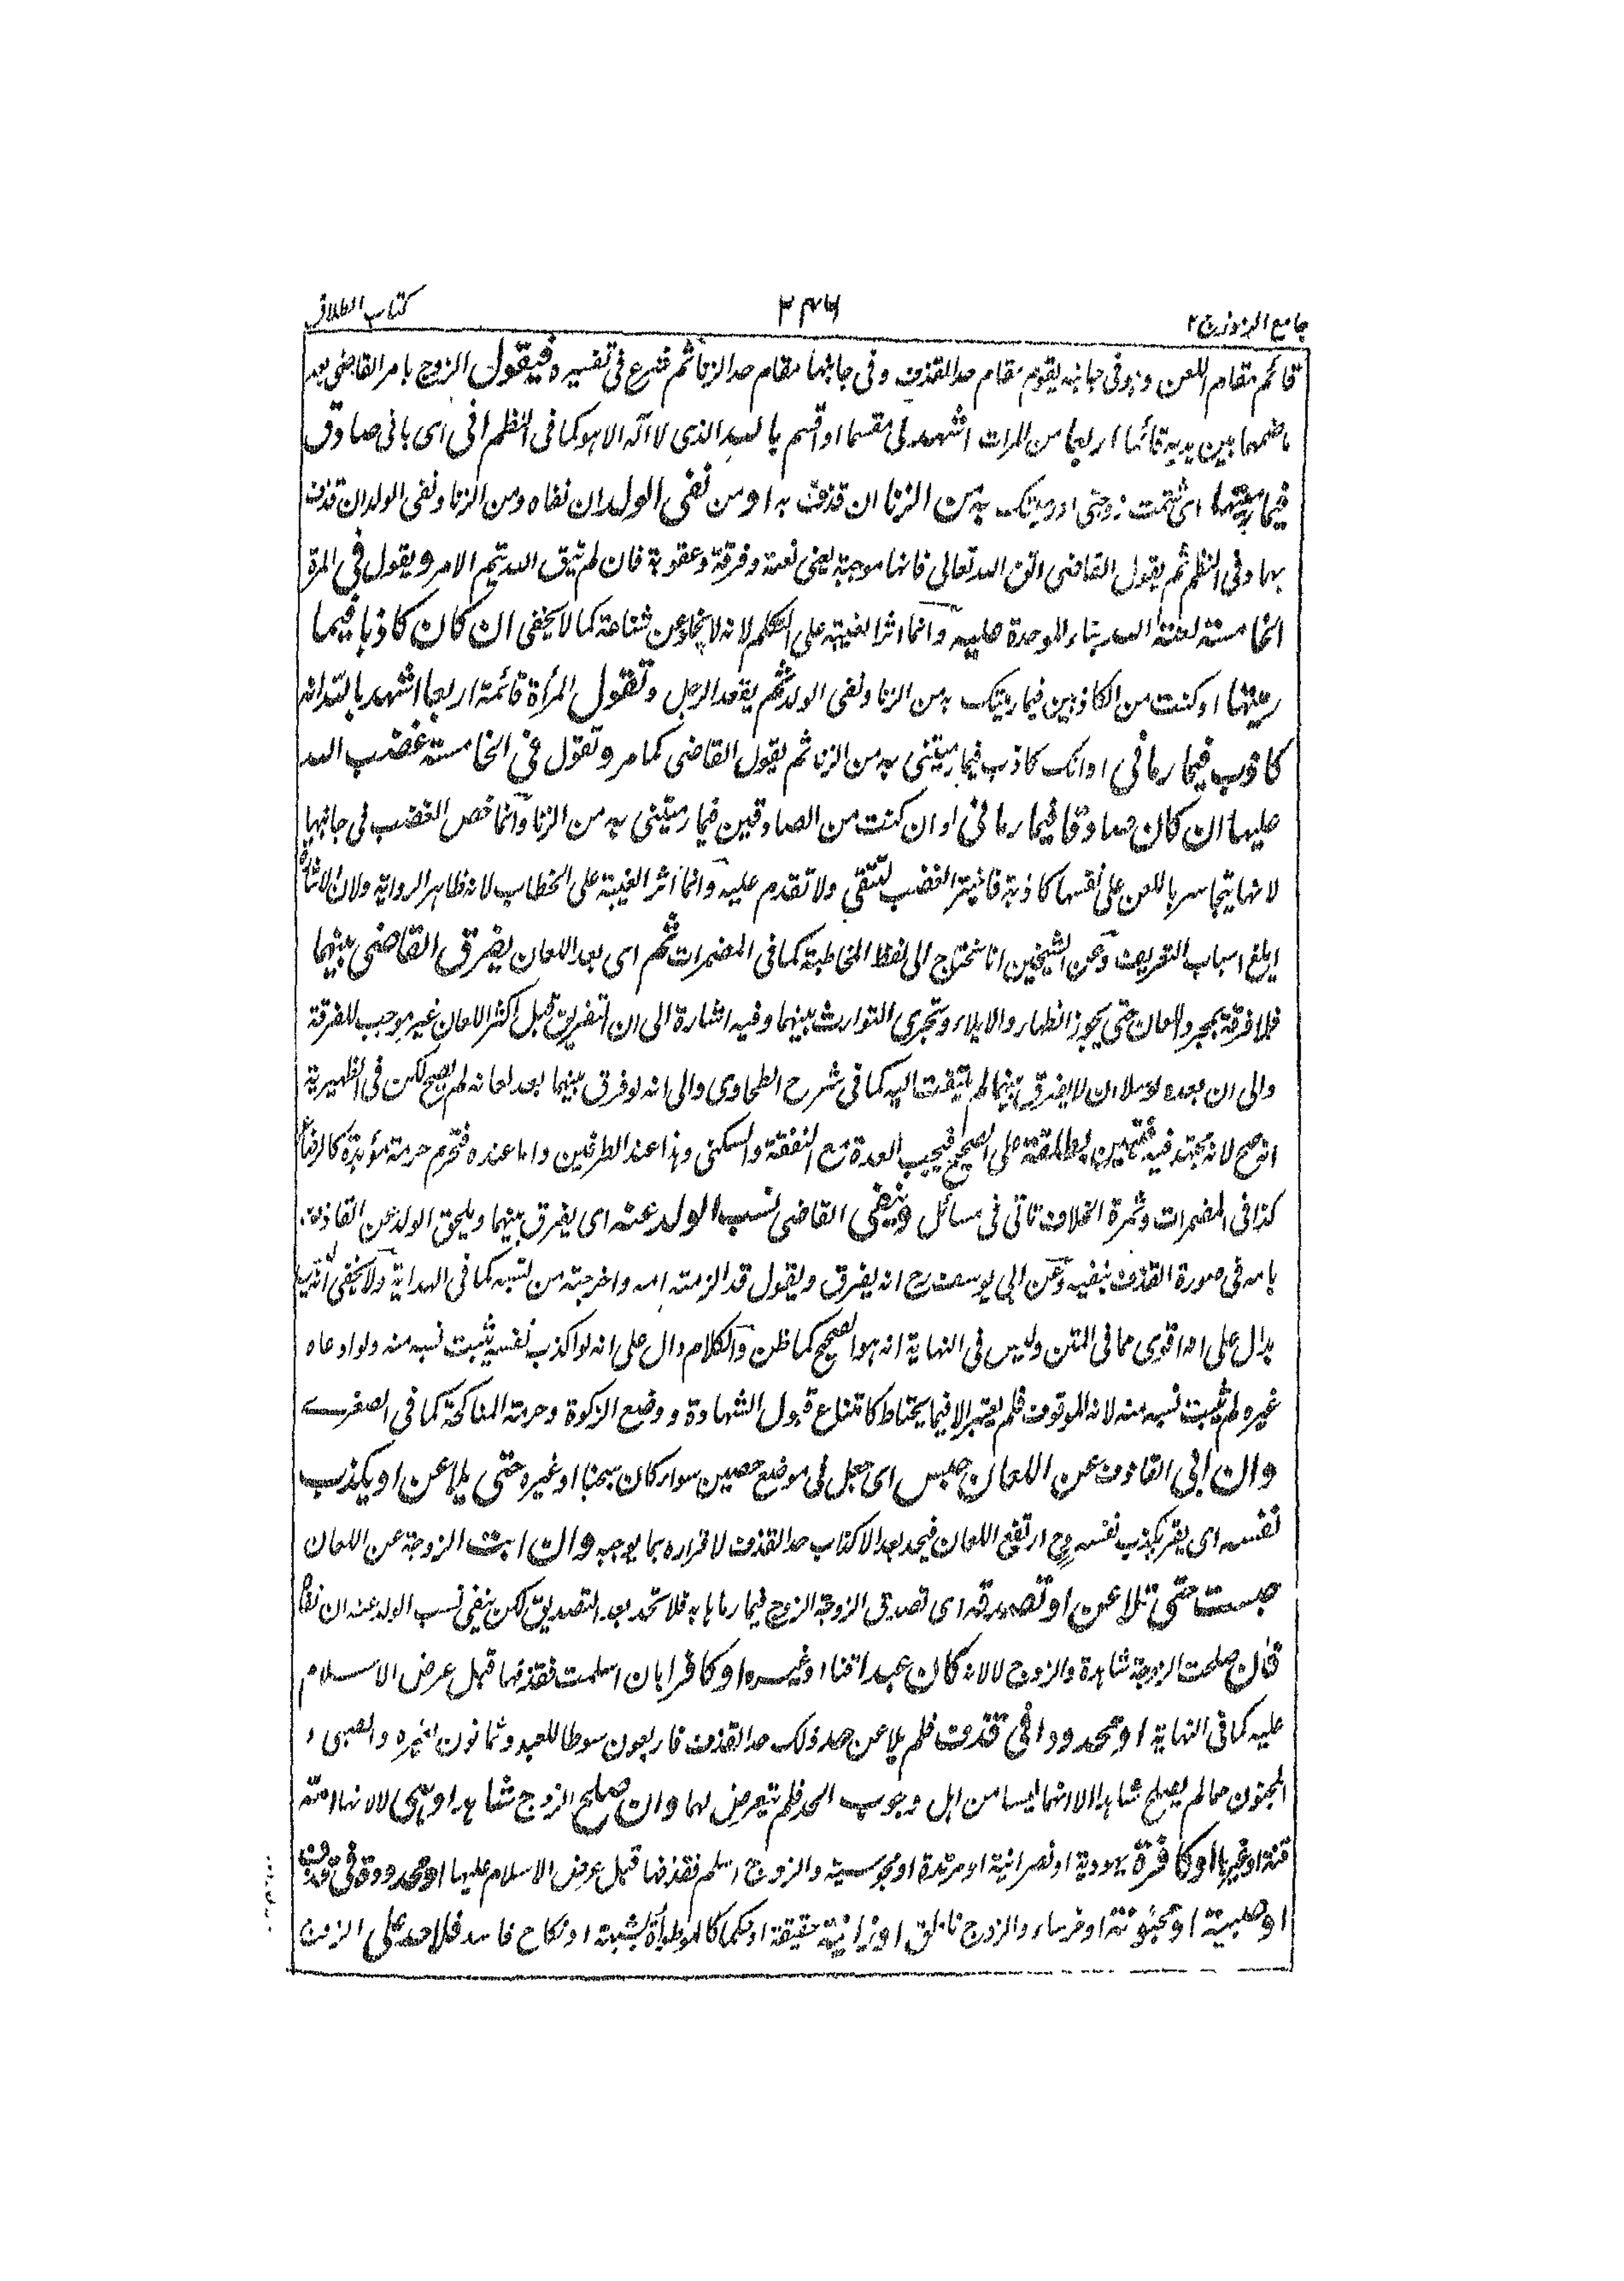 جامع الرموز ج ٢
٢٤٦
كتاب الطلاق
قائم مقام اللعن وهو فى جانبه يقوم مقام حد القذف وفى جانبها مقام حد الزنا ثم شرع فى تفسيره فيقول الزوج بامر القاضى بعد
ما ضمهما بين يديه قائما اربعا من المرات اشهد لى مقسما او اقسم بالله الذى لا اله الا هو كما فى النظم انى اى بانى صادق
فيما رميتها اى شتمت زوجتى او رميتك به من الزنا ان قذف به او من نفى الولد ان نفاه ومن الزنا ونفى الولد ان قذف
بهما وفى النظم ثم يقول القاضى اتق الله تعالى فانها موجبة يعنى لعنة وفرقة وعقوبة فان لم يتق الله يتم الامر ويقول فى المرة
الخامسة لعنة الله بتاء الموحدة عليه وانما اثر الغيبة على التكلم لانه لا يخلو عن شناعة كما لا يخفى ان كان كاذبا فيما
رميتها او كنت من الكاذبين فيما رميتك به من الزنا ونفى الولد ثم يقعد الرجل وتقول المرأة قائمة اربعا اشهد بالله انه
كاذب فيما رمانى او انك كاذب فيما رميتنى به من الزنا ثم يقول القاضى كما مر وتقول فى الخامسة غضب الله
عليها ان كان صادقا فيما رمانى او ان كنت من الصادقين فيما رميتنى به من الزنا وانما خص الغضب فى جانبها
لانها تتجاسر باللعن على نفسها كاذبة فاختير الغضب لتتقى ولا تقدم عليه وانما اثر الغيبة على الخطاب لانه ظاهر الرواية ولان
ابلغ اسباب التعريف وعن الشيخين انا نحتاج الى لفظ المخاطبة كما فى المضمرات ثم اى بعد اللعان يفرق القاضى بينهما
فلا فرقة بمجرد اللعان حتى يجوز الظهار والايلاء وتجرى التوارث بينهما وفيه اشارة الى ان التفريق قبل اكثر اللعان غير موجب للفرقة
والى ان بعده لو سلا ان لا يفرق بينهما لم يلتفت اليه كما فى شرح الطحاوى والى انه لو فرق بينهما بعد لعانه لم يصح لكن فى الظهيرية
انه صح لانه مجتهد فيه فتبين بطلقة على الصحيح فيجب العدة مع النفقة والسكنى وهذا عند الطرفين واما عنده فتحرم حرمة مؤبدة كالرضاع
كذا فى المضمرات وثمرة الخلاف تاتى فى مسائل وينفى القاضى نسب الولد عنه اى يفرق بينهما ويلحق الولد عن القاذف
بامه فى صورة القذف بنفيه وعن ابى يوسف رح انه يفرق ويقول قد الزمته امه واخرجته من نسبه كما فى الهداية ولا يخفى انه
يدل على انه اقوى مما فى المتن وليس فى النهاية انه هو الصحيح كما ظن والكلام دال على انه لو اكذب نفسه يثبت نسبه منه ولو ادعاه
غيره لم يثبت نسبه منه لانه الموقوف فلم يعتبر الا فيما يحتاط كامتناع قبول الشهادة ووضع الزكوة وحرمة المناكحة كما فى الصغرى
وان ابى القاذف عن اللعان حبس اى جعل فى موضع حصين سواء كان سجنا او غيره حتى يلاعن او يكذب
نفسه اى يقر بكذب نفسه وح ارتفع اللعان فيحد بعد الاكذاب حد القذف لاقراره بما يوجبه وان ابت الزوجة عن اللعان
حبست حتى تلاعن او تصدقه اى تصديق الزوجة الزوج فيما رماها به فلا تحد بعد التصديق لكن ينفى نسب الولد عنه ان نفاه
فان صلحت الزوجة شاهدة والزوج لا لانه كان عبدا قنا او غيره او كافرا بان اسلمت فقذفها قبل عرض الاسلام
عليه كما فى النهاية او محدودا فى قذف فلم يلاعن حد ذلك حد القذف فاربعون سوطا للعبد وثمانون لغيره والصبى و
المجنون مما لم يصلح شاهدا الا انهما ليسا من اهل وجوب الحد فلم يتعرض لهما وان صلح الزوج شاهدا وهى لا لانها امة
قنة او غيرها او كافرة يهودية او نصرانية او مرتدة او مجوسية والزوج اسلم فقذفها قبل عرض الاسلام عليها او محدودة فى قذف
او صبية او مجنونة او خرساء والزوج ناطق او زانية حقيقة او حكما كالموطوأة بشبهة او نكاح فاسد فلا حد على الزوج